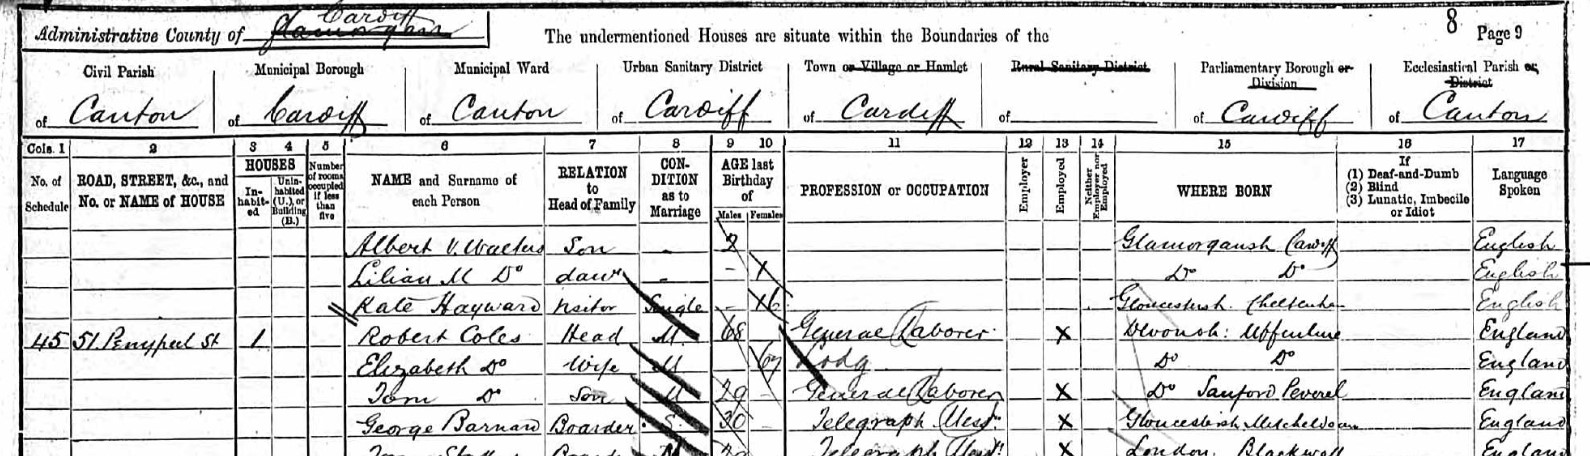 Administrative County of Glamorgan Cardiff The undermentioned Houses are situate within the Boundaries of the 8 Page 9
Civil Parish Municipal Borough Municipal Ward Urban Sanitary District Town or Village or Hamlet Rural Sanitary District Parliamentary Borough or Division Ecclesiastical Parish or District
of Canton of Cardiff of Canton of Cardiff of Cardiff of of Cardiff of Canton
Cols. 1 2 3 4 5 6 7 8 9 10 11 12 13 14 15 16 17
No. of Schedule ROAD, STREET, &c., and No. or NAME of HOUSE HOUSES Inhabited Uninhabited (U.), or Building (B.) Number of rooms occupied if less than five NAME and Surname of each Person RELATION to Head of Family CONDITION as to Marriage AGE last Birthday of Males Females PROFESSION or OCCUPATION Employer Employed Neither Employer nor Employed WHERE BORN If (1) Deaf-and-Dumb (2) Blind (3) Lunatic, Imbecile or Idiot Language Spoken
Albert V. Walters Son - 2 Glamorgansh Cardiff English
Lilian M Do daur - - 1 Do Do English
Kate Hayward Visitor Single - 16 Gloucestersh. Cheltenham English
45 51 Penypeel St 1 Robert Coles Head M 68 General Laborer X Devonsh: Uffculme England
Elizabeth Do Wife M 67 Do Do England
Tom Do Son M 29 - General Laborer X Do Sanford Peverel England
George Barnard Boarder S 30 Telegraph Messr: X Gloucestersh Mitcheldean England
Telegraph Messr: X London. Blackwall England